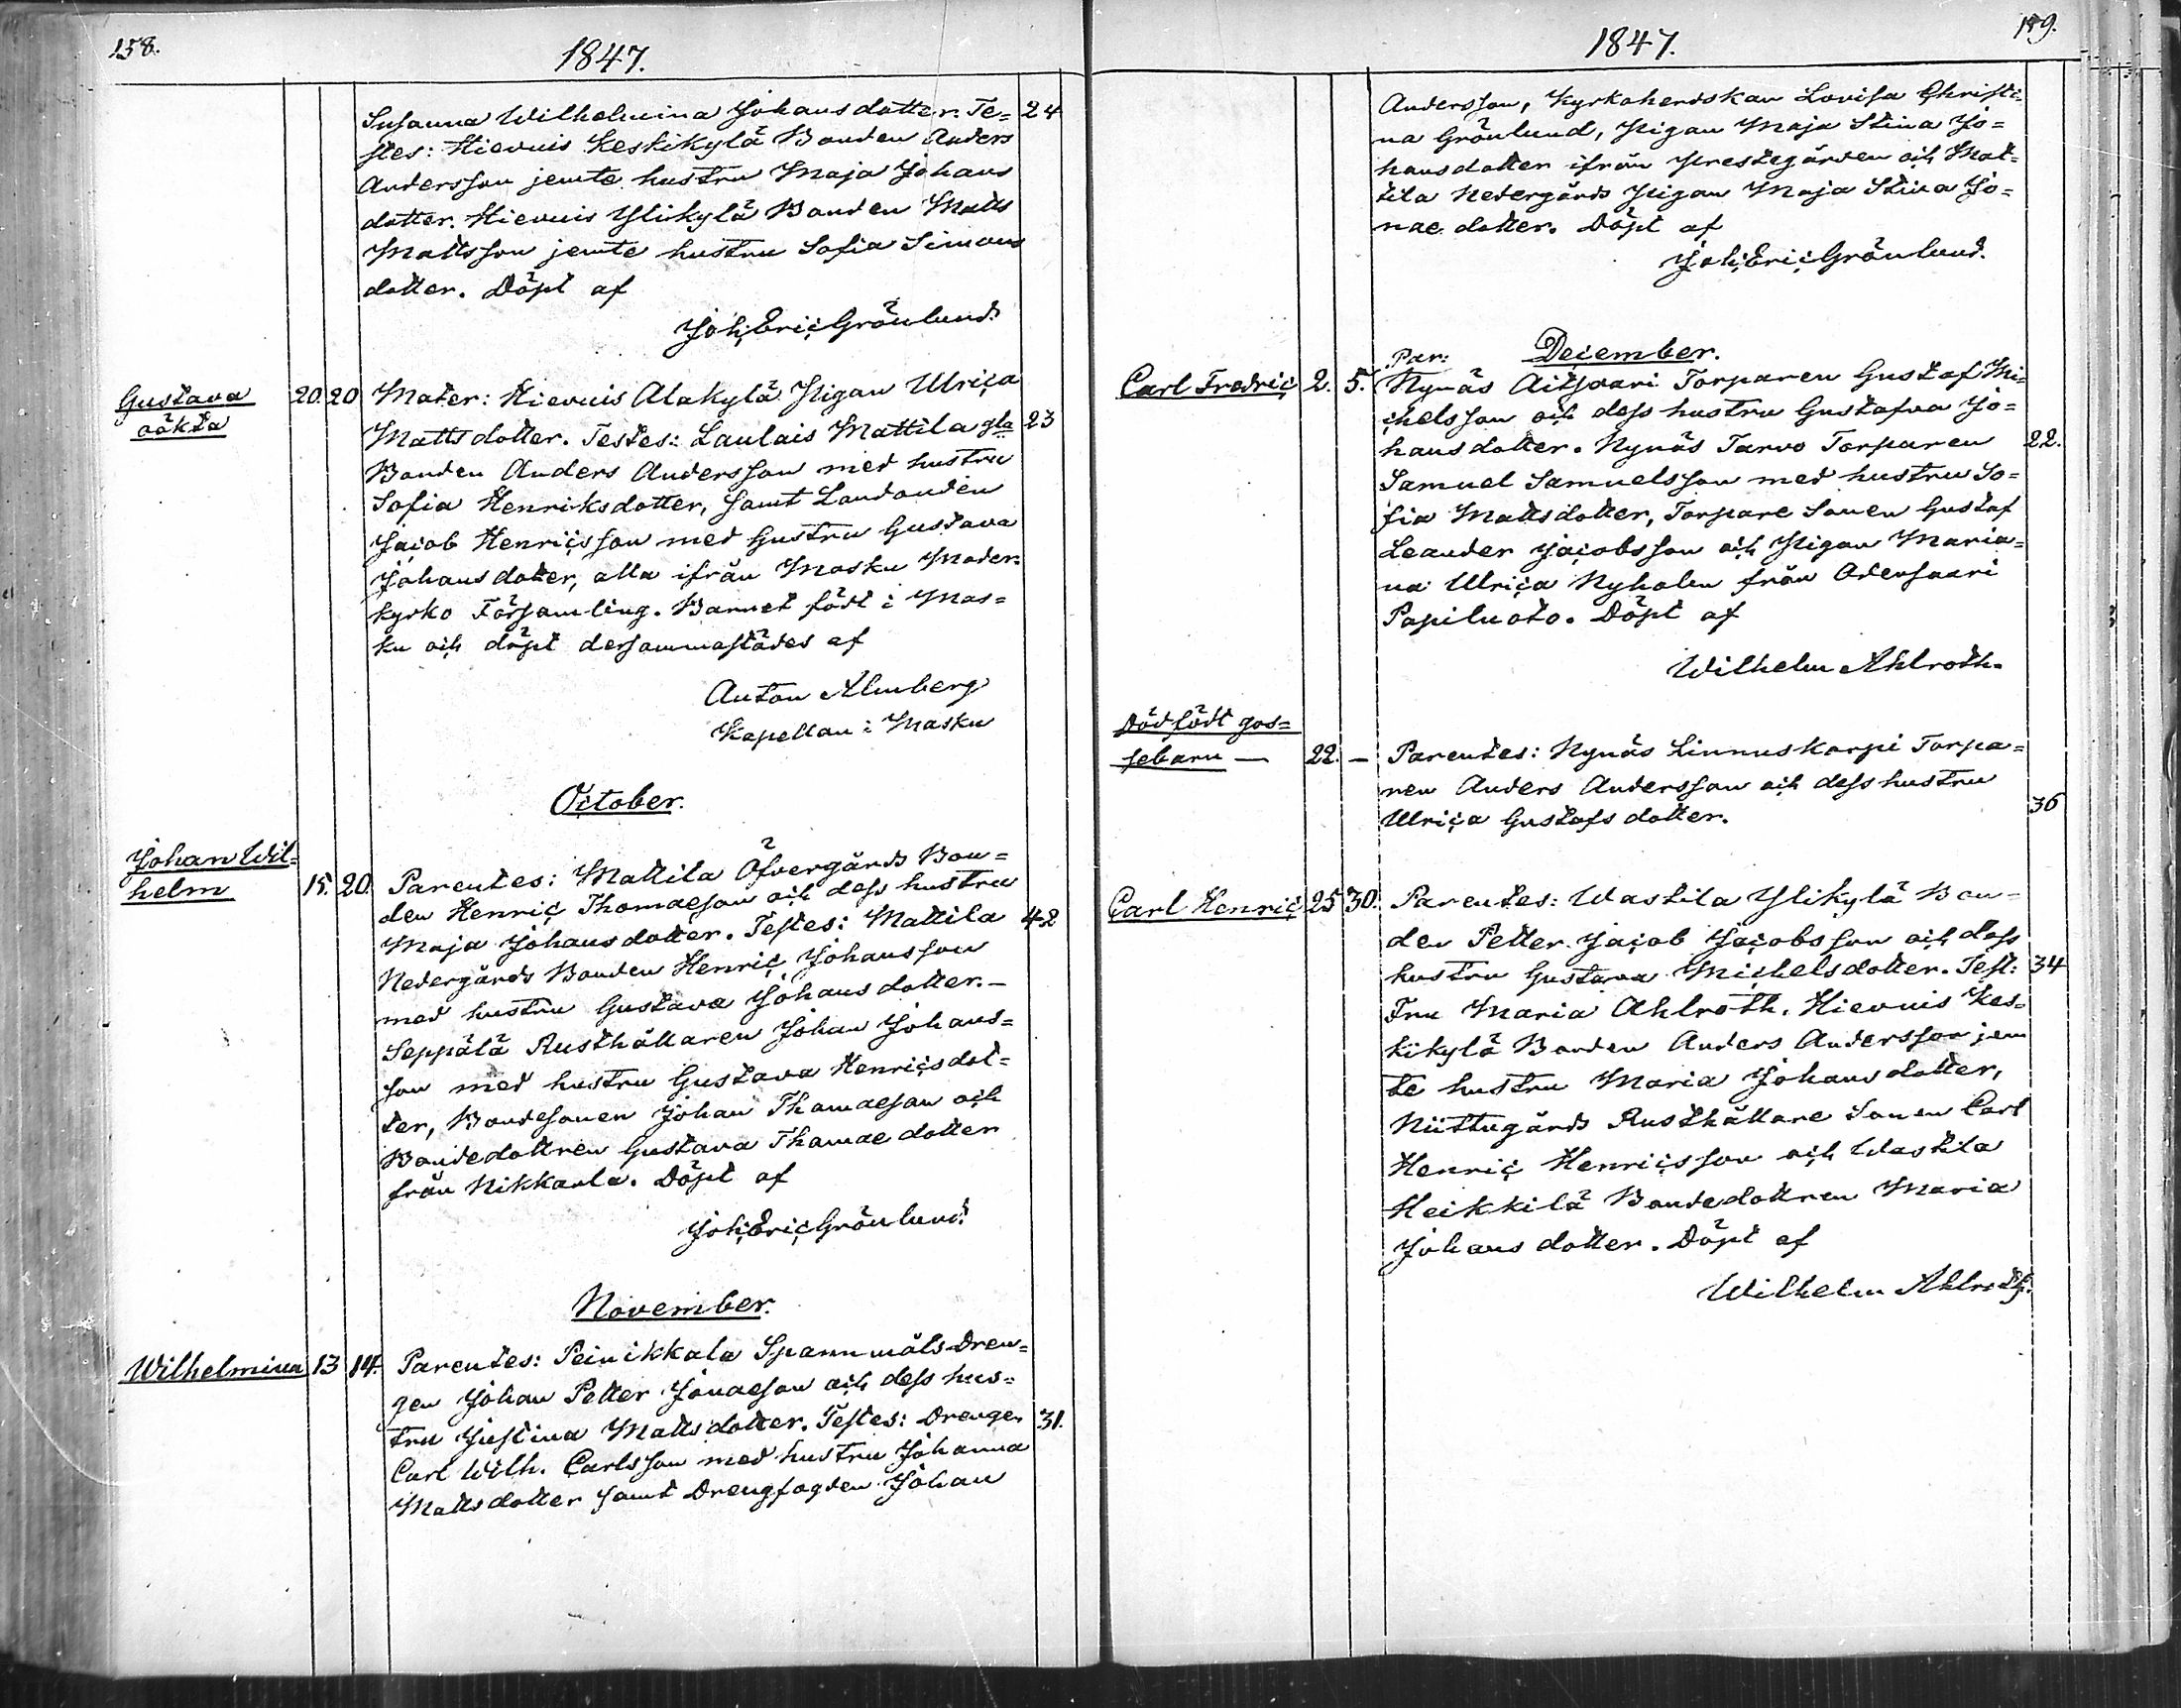 158.
1847.
Susanna Wilhelmina Johansdotter. Te= 24
stes: Hievuis Keskikylä Bonden Anders
Andersson jemte hustru Maja Johans
dotter. Hievuis Ylikylä Bonden Matts
Mattsson jemte hustru Sofia Simons
dotter. Döpt af
Joh. Eric Grönlund.
Gustava 20. 20 Mater: Hievuis Alakylä Pigan Ulrica
oäkta Mattsdotter. Testes: Laulais Mattila gla 23
Bonden Anders Andersson med hustru
Sofia Henriksdotter, samt Landbonden
Jacob Henricsson med Gustru Gustava
Johansdotter, alla ifrån Masku Moder-
kyrko Församling. Barnet född i Mas=
ku och döpt dersammastädes af
Anton Almberg
Kapellan i Masku
October.
Johan Wil=
helm 15. 20. Parentes: Mattila Öfvergårds Bon=
den Henric Thomaeson och dess hustru
Maja Johansdotter. Testes: Mattila 42
Nedergårds Bonden Henric Johansson
med hustru Gustava Johansdotter.–
Seppälä Rusthållaren Johan Johans=
son med hustru Gustava Henricsdot=
ter, Bondesonen Johan Thomaeson och
Bondedottren Gustava Thomaedotter
från Nikkarla. Döpt af
Joh. Eric Grönlund.
November.
Wilhelmina 13 14. Parentes: Peinikkala Spannmåls Dren=
gen Johan Petter Jonaeson och dess hus=
tru Justina Mattsdotter. Testes: Drengen 31.
Carl Wilh. Carlsson med hustru Johanna
Mattsdotter samt Drengfogden Johan
159.
1847.
Andersson, Kyrkoherdskan Lovisa Christi=
na Grönlund, Pigan Maja Stina Jo=
hansdotter ifrån Prestegården och Mat=
tila Nedergårds Pigan Maja Stina Jo=
nae dotter. Döpt af
Joh. Eric Grönlund.
December.
Par:
Carl Fredric 2. 5. Nynäs Aitsaari Torparen Gustaf Mi=
chelsson och dess hustru Gustafva Jo=
hansdotter. Nynäs Tarvo Torparen 22.
Samuel Samuelsson med hustru So=
fia Mattsdotter, Torpare Sonen Gustaf
Leander Jacobsson och Pigan Maria=
na Ulrica Nyholm från Odensaari
Papiluoto. Döpt af
Wilhelm Ahlroth.
Dödfödt gos=
sebarn — 22. — Parentes: Nynäs Linnuskarpi Torpa=
ren Anders Andersson och dess hustru
Ulrica Gustafsdotter. 36
Carl Henric 25 30. Parentes: Wastila Ylikylä Bon=
den Petter Jacob Jacobsson och dess
hustru Gustava Michelsdotter. Test: 34
Fru Maria Ahlroth. Hievuis Kes=
kikylä Bonden Anders Andersson jem
te hustru Maria Johansdotter,
Niittugårds Rusthållare Sonen Carl
Henric Henricsson och Wastila
Heikkilä Bondedottren Maria
Johansdotter. Döpt af
Wilhelm Ahlroth.